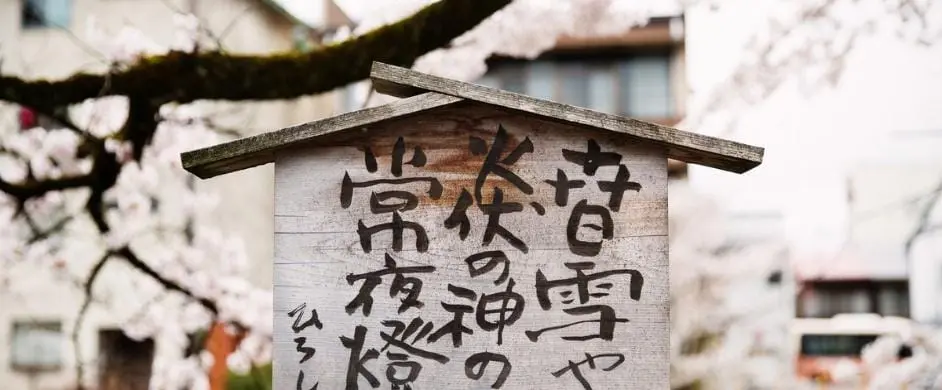 昔雪や
火伏の神の
常夜燈
ひろし